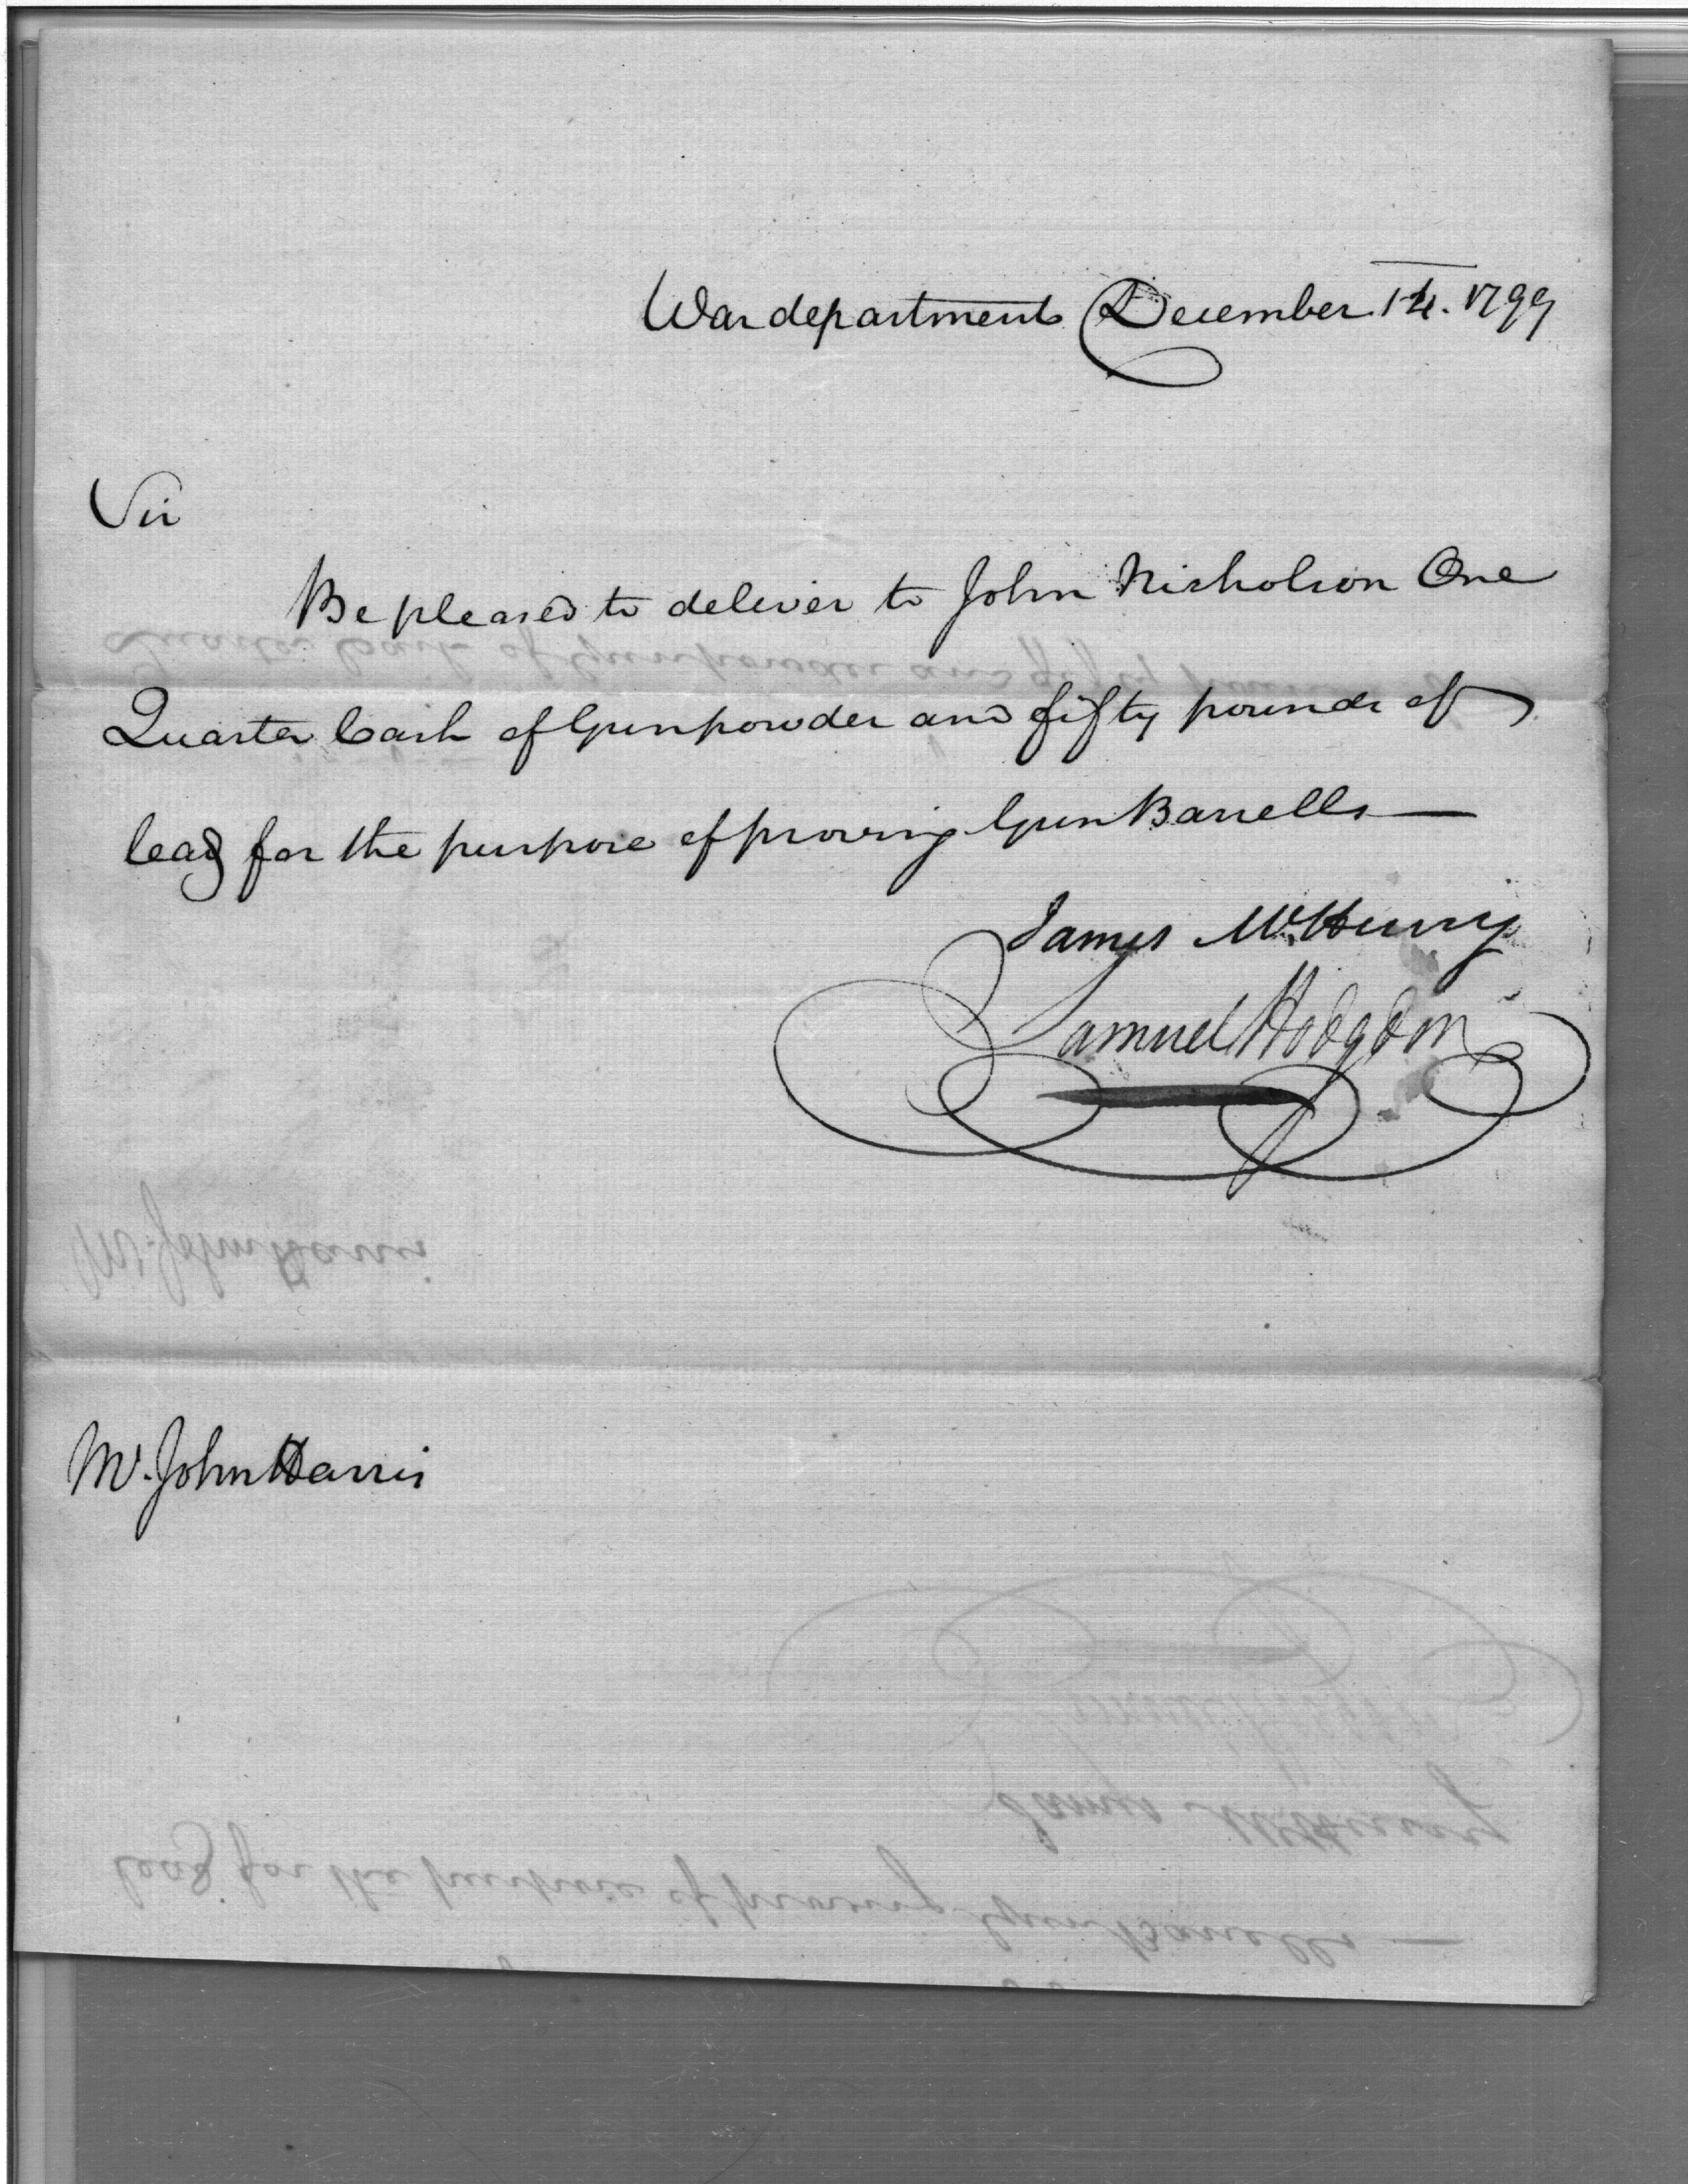 War department December 14. 1799
Sir
Be pleased to deliver to John Nicholson One
Quarter Cask of Gunpowder and fifty pounds of
lead for the purpose of proving Gun Barrells—
James McHenry
Samuel Hodgdon
Mr. John Harris